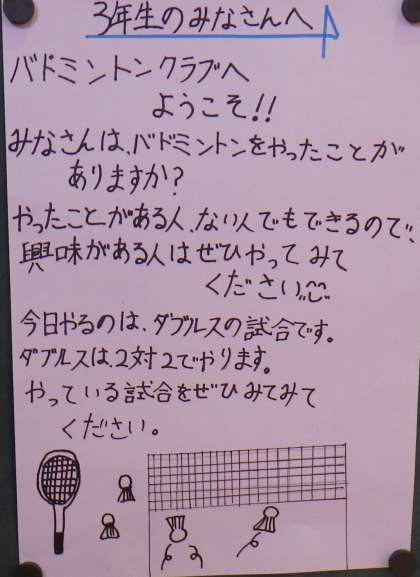 3年生のみなさんへ
バドミントンクラブへ
ようこそ!!
みなさんは、バドミントンをやったことが
ありますか?
やったことがある人、ない人でもできるので、
興味がある人はぜひやってみて
ください
今日やるのは、ダブルスの試合です。
ダブルスは、2対2でやります。
やっている試合をぜひみてみて
ください。